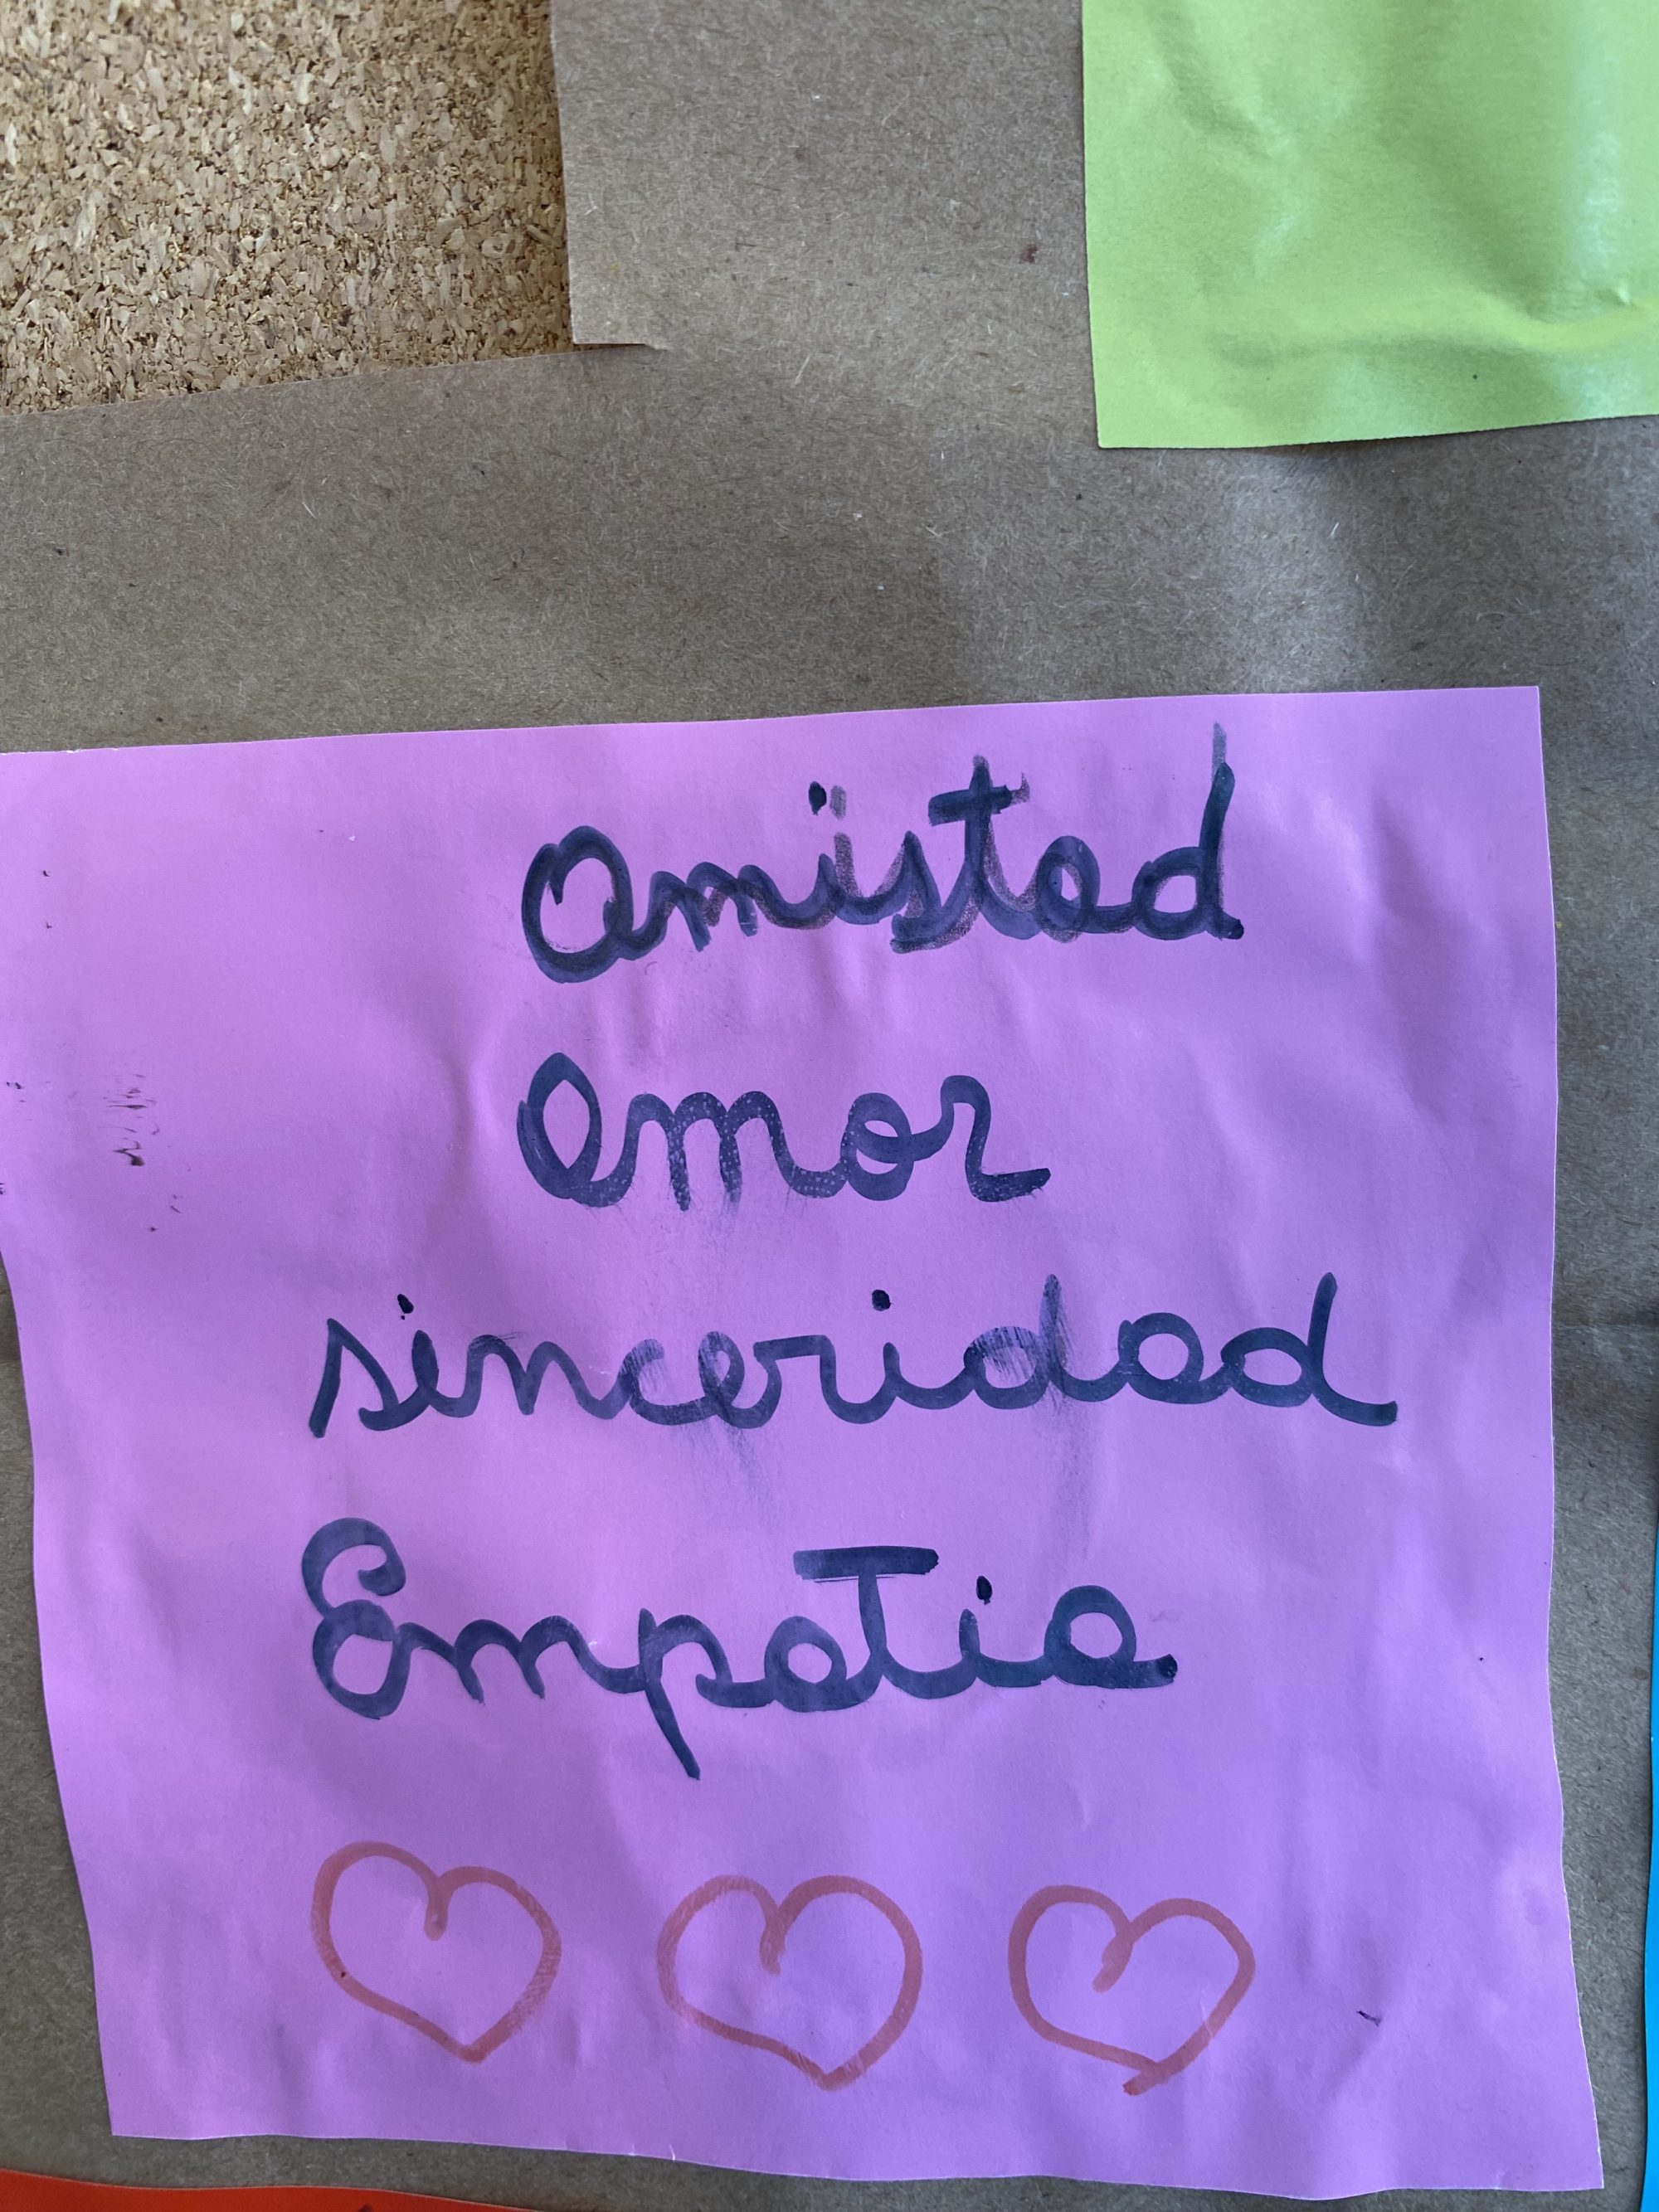 Amistad
Amor
sinceridad
Empatia